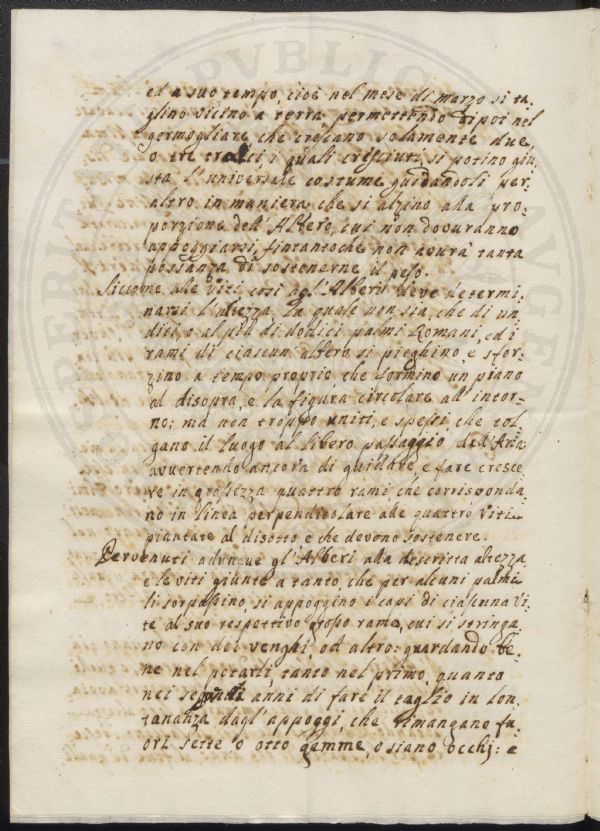 ed a suo tempo, cioè nel mese di marzo si ta-
glino vicino a terra, permettendo dipoi nel
germogliare che crescano solamente due,
o tre tralci, i quali cresciuti, si potino giu-
sta l'universale costume guidandoli per
altro in muniera che si alzino alla pro-
porzione dell'Albero, cui non dovranno
appoggiarsi, fintantoche non avurà tanta
possanza di sostenerne il peso.
Siccome alle viti, cosi agl'Alberi deve determi-
narsi l'altezza, la quale non sia, che di un-
dici, o al più di dodici palmi Romani, ed i
rami di ciascun albero si pieghino, e sfor-
zino a tempo proprio, che formino un piano
al disopra, e la figura circolare all'intor-
no; ma non troppo uniti, e spessi che tol-
gano il luogo al libero passaggio dell'Aria
avvertendo ancora di guidare, e fare cresce-
re in grossezza quattro rami, che corrisponda-
no in linea perpendicolare alle quattro viti
piantate al disotto e che devono sostenere.
Pervenuti adunque gl'Alberi alla descritta altezza,
e le viti giunte a tanto, che per alcuni palmi
li sorpassino, si appoggino i capi di ciascuna vi-
te al suo respettivo grosso ramo, cui si stringa-
no con dei venghi, od altro: guardando be-
ne nel potarli, tanto nel primo, quanto
nei seguenti anni di fare il taglio in lon-
tananza dagl'appoggi, che rimangano fu-
ori sette o otto gemme, o siano occhj: e